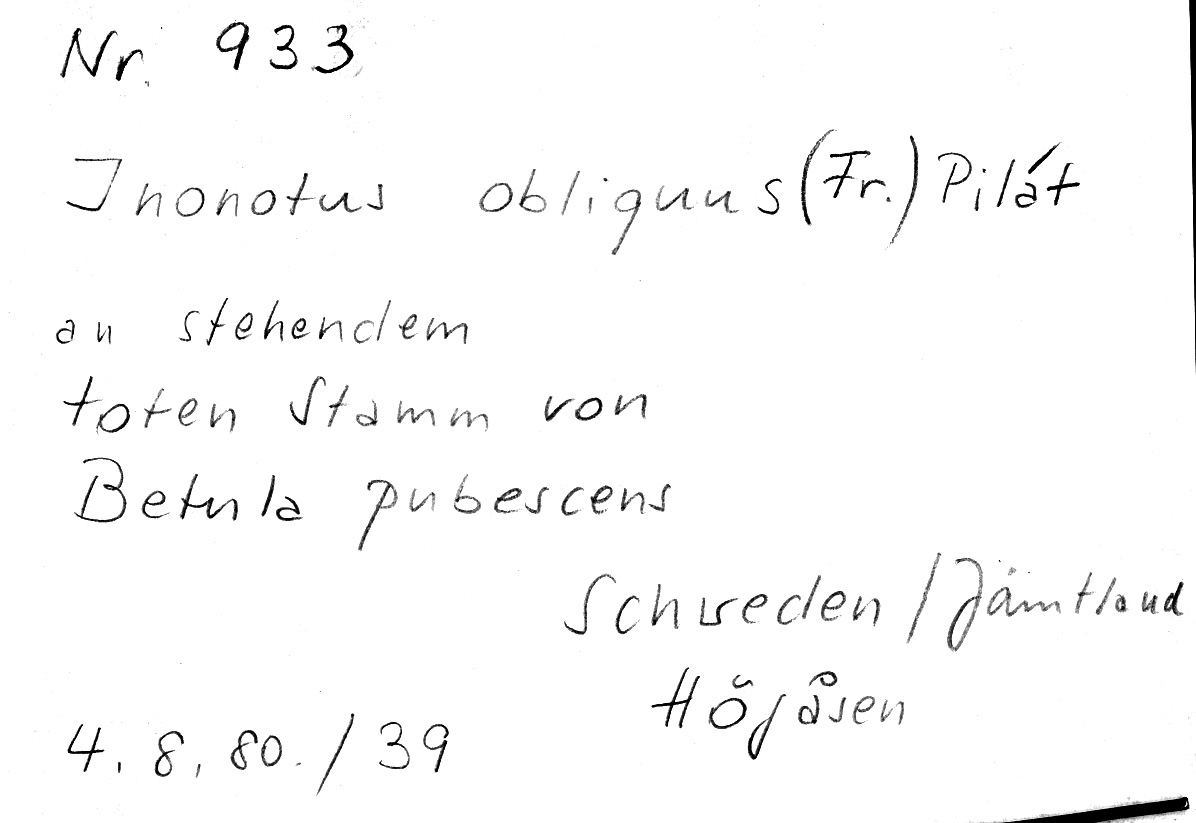 Nr. 933
Inonotus obliquus (Fr.) Pilát
an stehendem
toten Stamm von
Betula pubescens
Schweden / Jämtland
Höjåsen
4. 8. 80. / 39